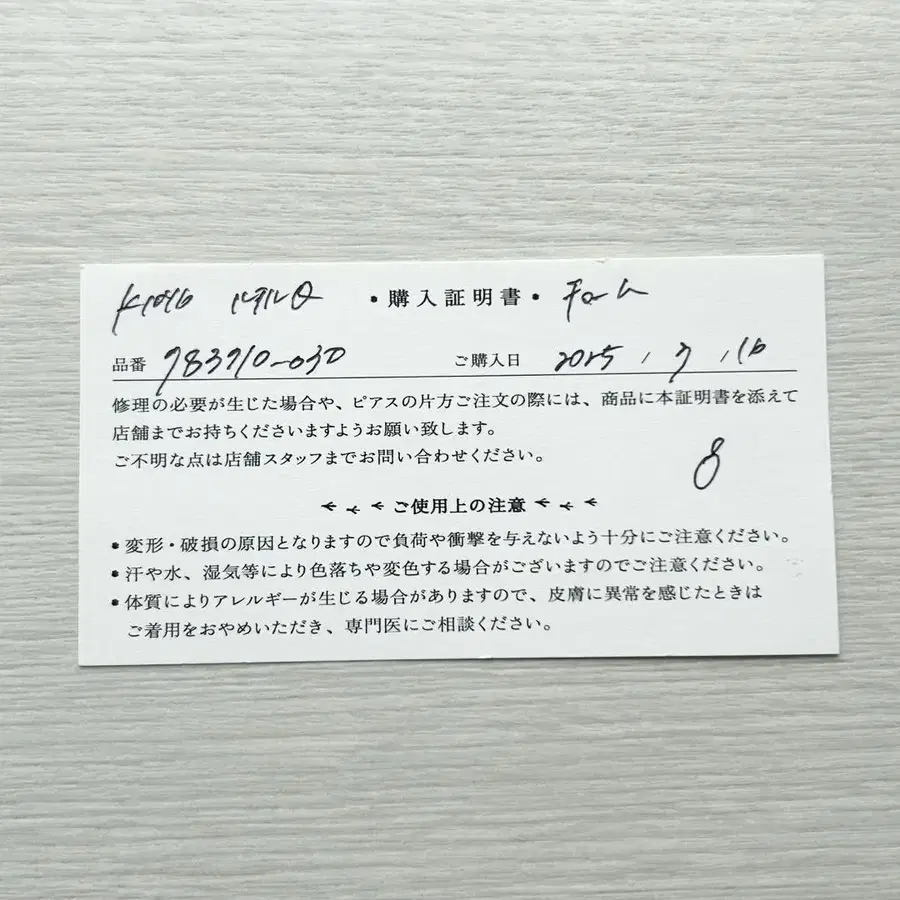 ・購入証明書・
品番 783710-030 ご購入日 2025 . 7 . 16
修理の必要が生じた場合や、ピアスの片方ご注文の際には、商品に本証明書を添えて
店舗までお持ちくださいますようお願い致します。
ご不明な点は店舗スタッフまでお問い合わせください。
8
ご使用上の注意
・変形・破損の原因となりますので負荷や衝撃を与えないよう十分にご注意ください。
・汗や水、湿気等により色落ちや変色する場合がございますのでご注意ください。
・体質によりアレルギーが生じる場合がありますので、皮膚に異常を感じたときは
ご着用をおやめいただき、専門医にご相談ください。